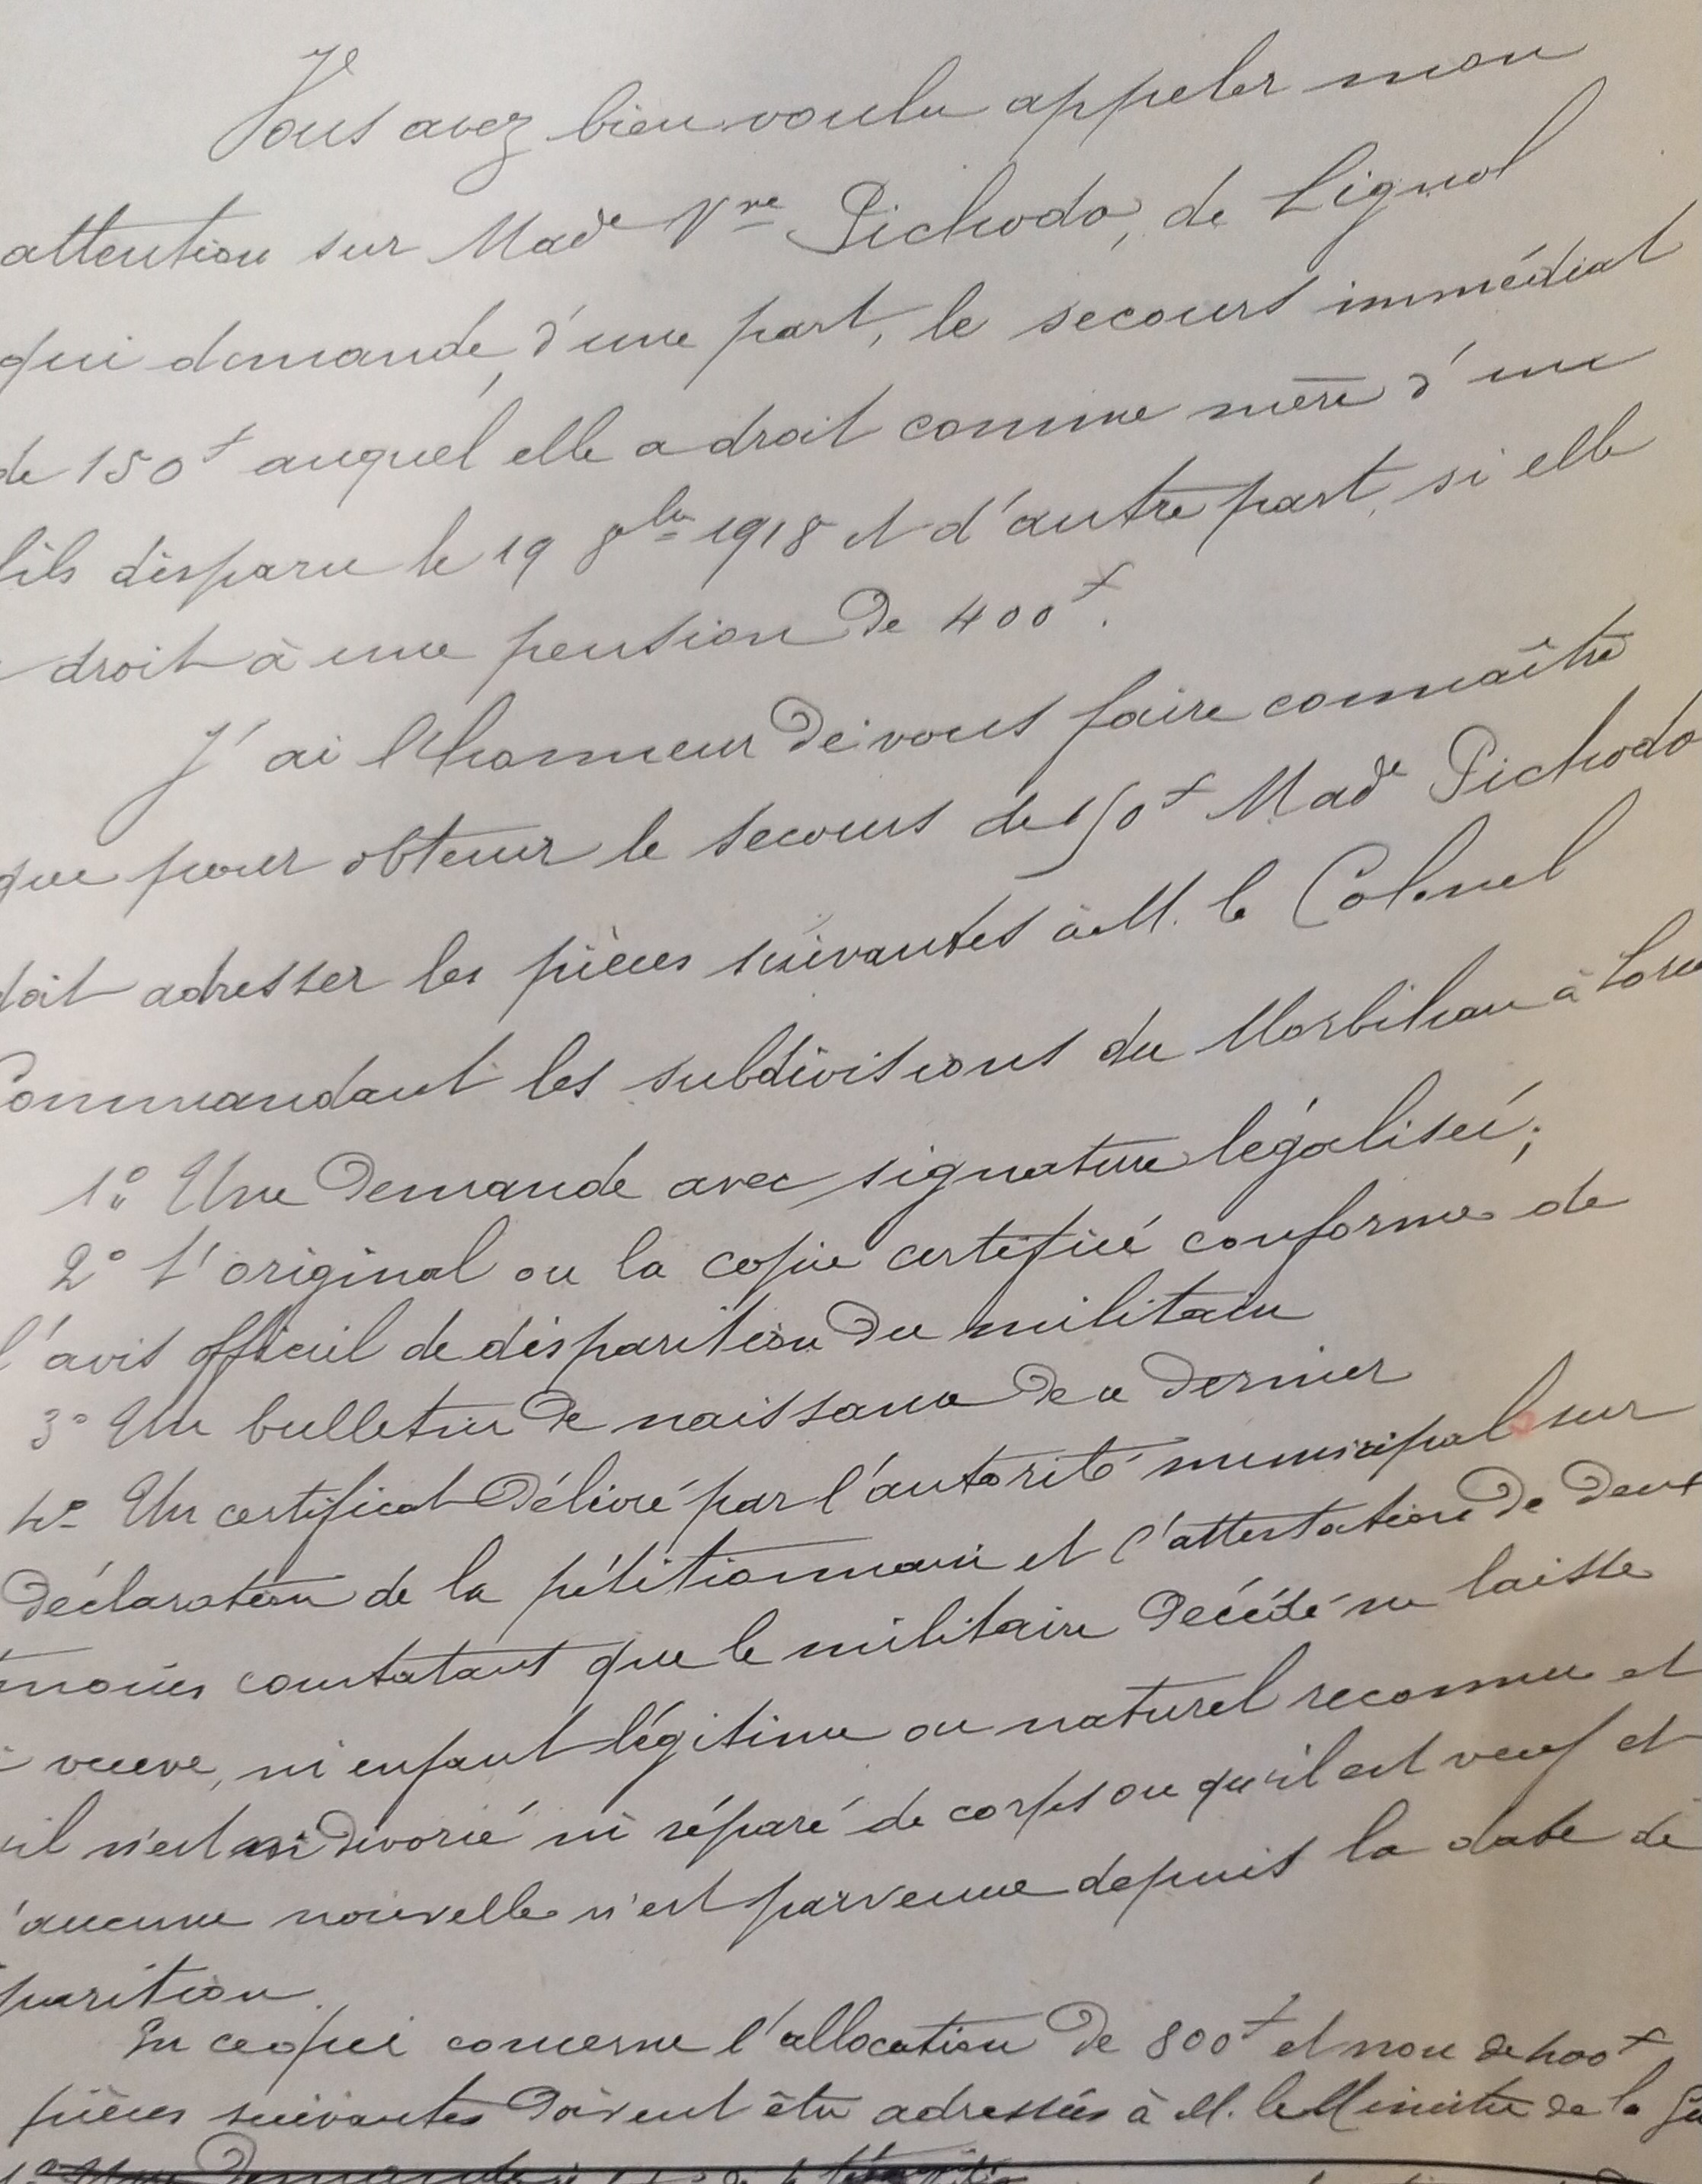 Vous avez bien voulu appeler mon
attention sur Made Vve Pichodo, de Lignol
qui demande, d'une part, le secours immédiat
de 150f auquel elle a droit comme mère d'un
fils disparu le 19 8bre 1918 et d'autre part, si elle
droit à une pension de 400f.
J'ai l'honneur de vous faire connaître
que pour obtenir le secours de 150f Made Pichodo
doit adresser les pièces suivantes à M. le Colonel
Commandant les subdivisions du Morbihan à
1° Une demande avec signature légalisée;
2° L'original ou la copie certifiée conforme de
l'avis officiel de disparition du militaire
3° Un bulletin de naissance de ce dernier
4° Un certificat délivré par l'autorité municipale sur
déclaration de la pétitionnaire et l'attestation de deux
constatant que le militaire décédé ne laisse
veuve, ni enfant légitime ou naturel reconnu et
il n'est ni divorcé ni séparé de corps ou qu'il est veuf et
aucune nouvelle n'est parvenue depuis la date de
parition.
En ce qui concerne l'allocation de 800f et non de 400f
pièces suivantes doivent être adressées à M. le Ministre de la